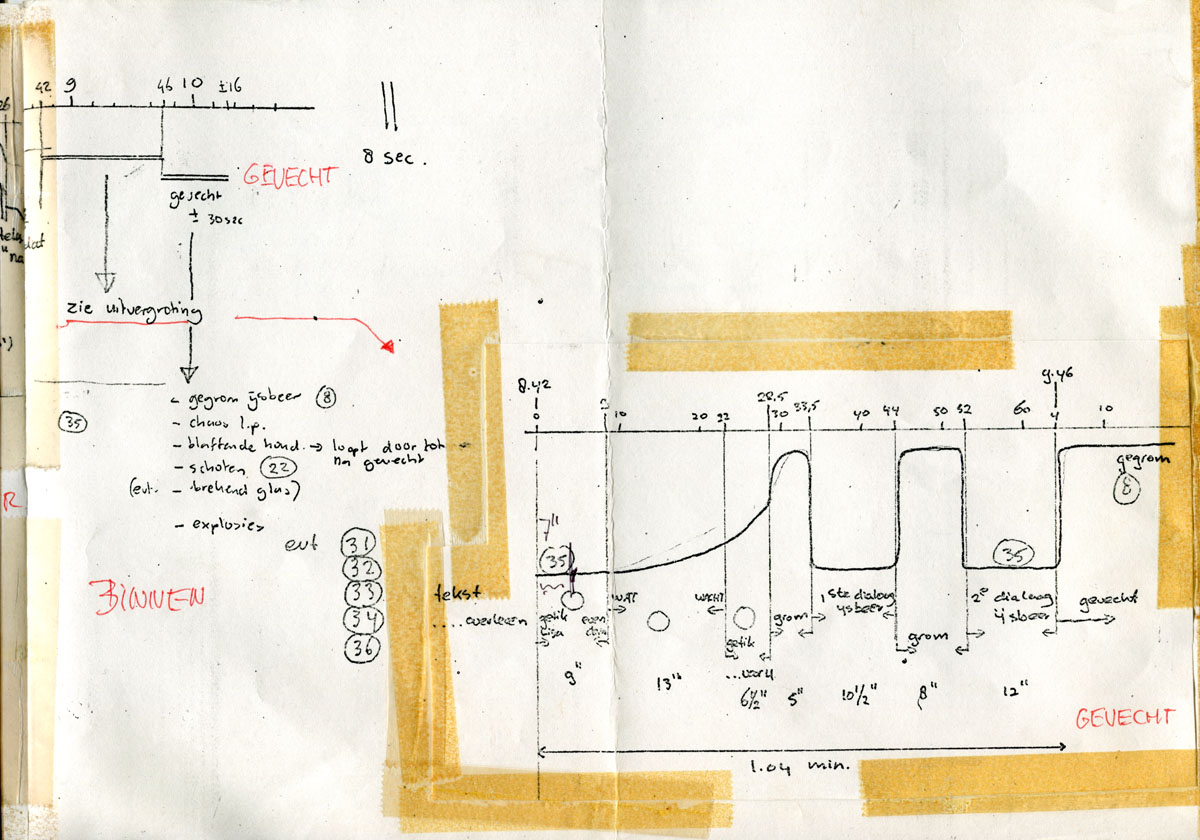 42 9 46 10 ±16
8 sec.
GEVECHT
gevecht
± 30 sec
zie uitvergroting
- gegrom ijsbeer 8
35
- chaos l.p.
- blaffende hond → loopt door tot
na gevecht
- schoten 22
(evt. - brekend glas)
- explosies
evt 31
32
33
34
36
BINNEN
R
8.42 9.46
0 9 10 20 22 28,5 30 33,5 40 44 50 52 60 4 10
gegrom
8
7"
35
35
tekst
.... overleven
getik
even
WAT
WACHT
getik
grom
1ste dialoog
ijsbeer
grom
2e dialoog
ijsbeer
gevecht
9" 13" 6½" 5" 10½" 8" 12"
GEVECHT
1.04 min.